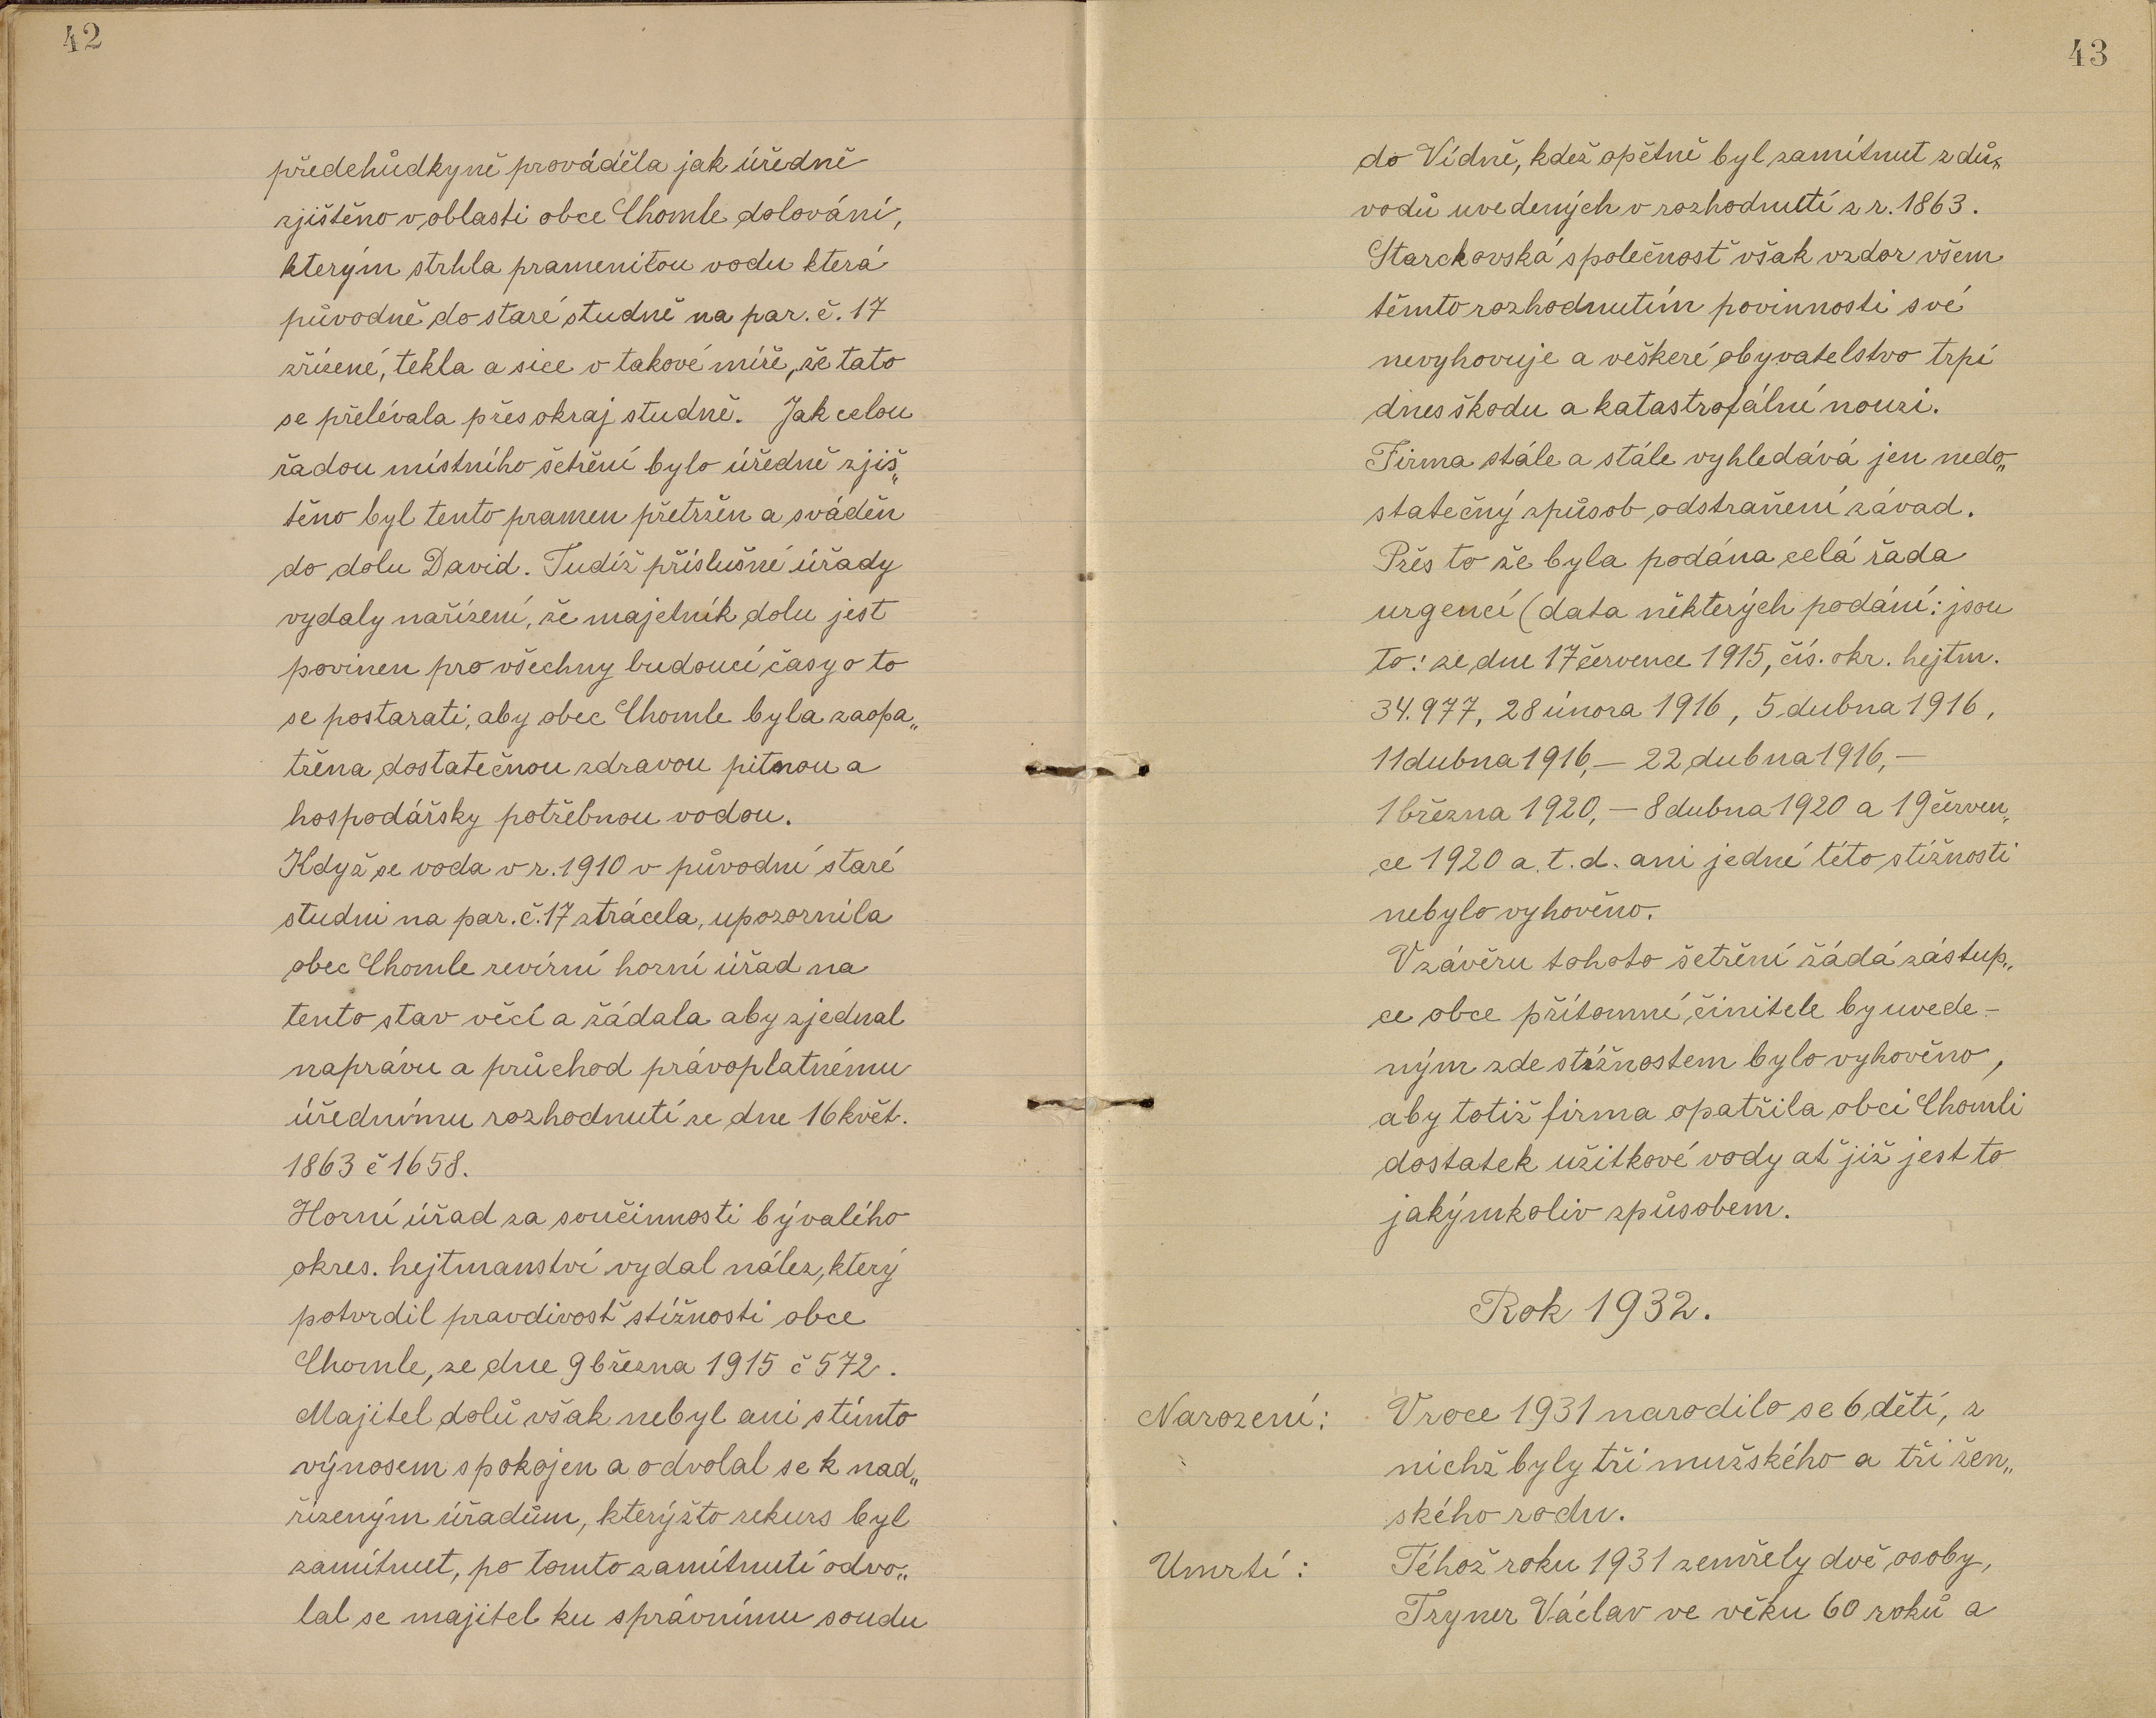 42
předchůdkyně prováděla jak úředně
zjištěno v oblasti obce Chomle dolování,
kterým strhla pramenitou vodu která
původně do staré studně na par. č. 17
zřízené, tekla a sice v takové míře, že tato
se přelévala přes okraj studně. Jak celou
řadou místního šetření bylo úředně zjiš„
těno byl tento pramen přetržen a sváděn
do dolu David. Tudíž příslušné úřady
vydaly nařízení, že majetník dolu jest
povinen pro všechny budoucí časy o to
se postarati, aby obec Chomle byla zaopa„
třena dostatečnou zdravou pitnou a
hospodářsky potřebnou vodou.
Když se voda v r. 1910 v původní staré
studni na par. č. 17 ztrácela, upozornila
obec Chomle revírní horní úřad na
tento stav věcí a žádala aby zjednal
naprávu a průchod právoplatnému
úřednímu rozhodnutí ze dne 16 květ.
1863 č 1658.
Horní úřad za součinnosti bývalého
okres. hejtmanství vydal nález, který
potvrdil pravdivosť stížnosti obce
Chomle, ze dne 9 března 1915 č 572.
Majitel dolů však nebyl ani stímto
výnosem spokojen a odvolal se k nad„
řízeným úřadům, kterýžto rekurs byl
zamítnut, po tomto zamítnutí odvo„
lal se majitel ku správnímu soudu
43
do Vídně, kdež opětně byl zamítnut z dů„
vodů uvedených v rozhodnutí z r. 1863.
Starckovská společnosť však vzdor všem
těmto rozhodnutím povinnosti své
nevyhovuje a veškeré obyvatelstvo trpí
dnes škodu a katastrofální nouzi.
Firma stále a stále vyhledává jen nedo„
statečný způsob odstranění závad.
Přes to že byla podána celá řada
urgencí (data některých podání: jsou
to: ze dne 17 července 1915, čís. okr. hejtm.
34.977, 28 února 1916, 5 dubna 1916,
11 dubna 1916, — 22 dubna 1916, —
1 března 1920, — 8 dubna 1920 a 19 červen„
ce 1920 a. t. d. ani jedné této stížnosti
nebylo vyhověno.
V závěru tohoto šetření žádá zástup„
ce obce přítomné činitele by uvede-
ným zde stížnostem bylo vyhověno,
aby totiž firma opatřila obci Chomli
dostatek užitkové vody ať již jest to
jakýmkoliv způsobem.
Rok 1932.
Narození: V roce 1931 narodilo se 6 dětí, z
nichž byly tři mužského a tři žen„
ského rodu.
Umrtí: Téhož roku 1931 zemřely dvě osoby,
Tryner Václav ve věku 60 roků a